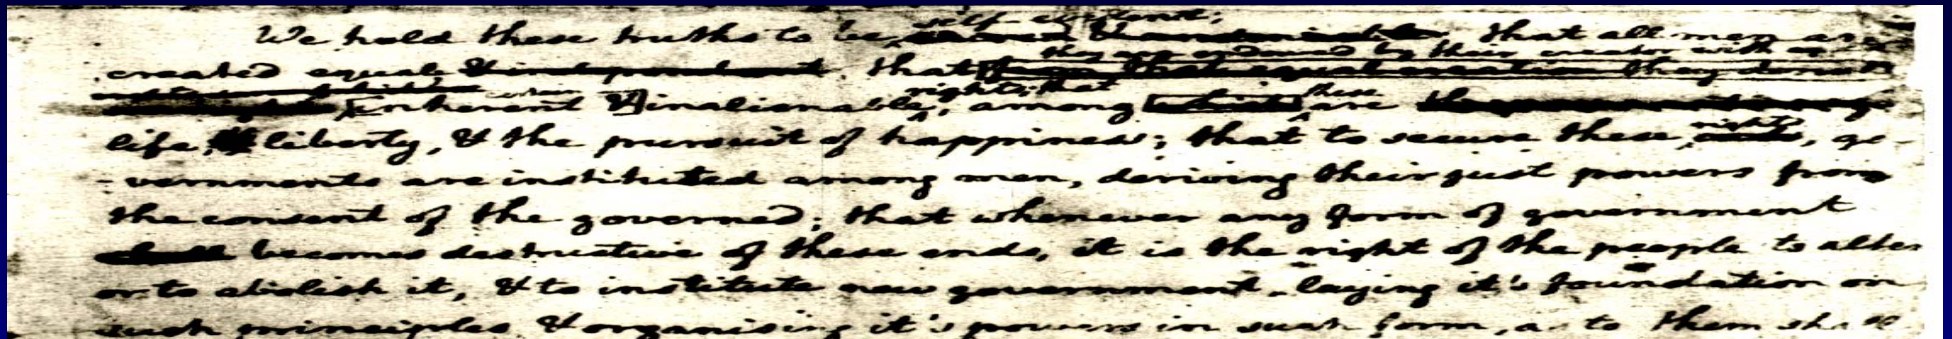 self-evident;
We hold these truths to be that all men are
they are endowed by their creator with
created equal & independent that from that equal creation they derive
rights; that
inherent & inalienable, among which these are
life, liberty, & the pursuit of happiness; that to secure these rights, go-
-vernments are instituted among men, deriving their just powers from
the consent of the governed; that whenever any form of government
shall becomes destructive of these ends, it is the right of the people to alter
or to abolish it, & to institute new government, laying it's foundation on
such principles & organising it's powers in such form, as to them shall